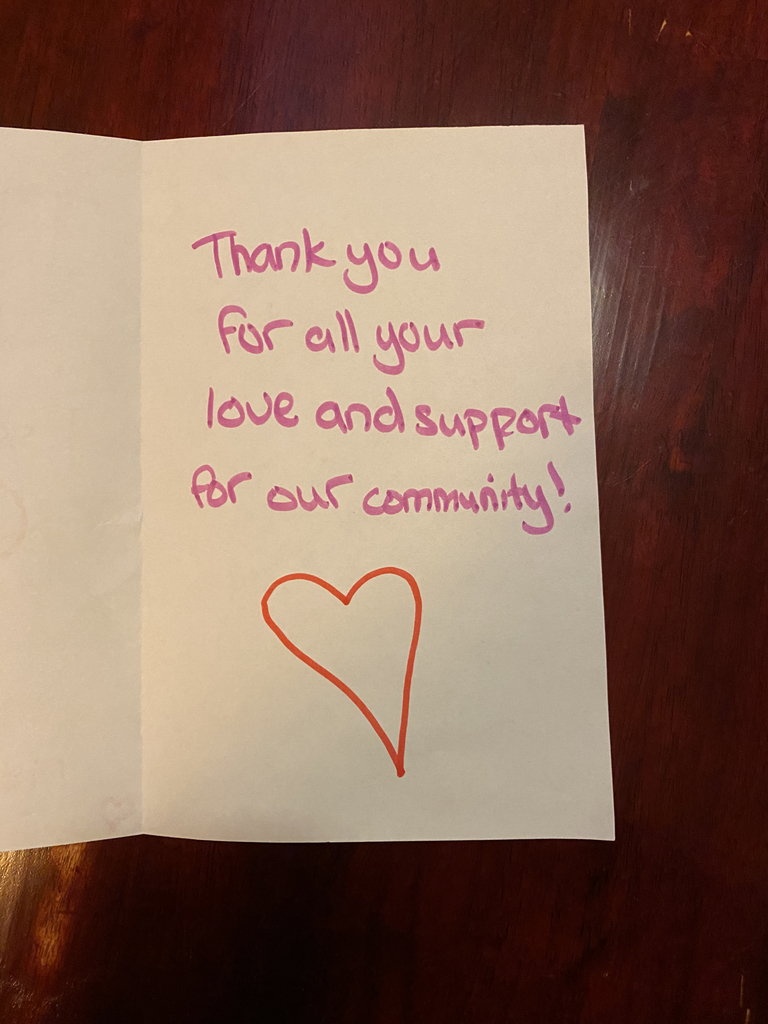 Thank you
for all your
love and support
for our community!